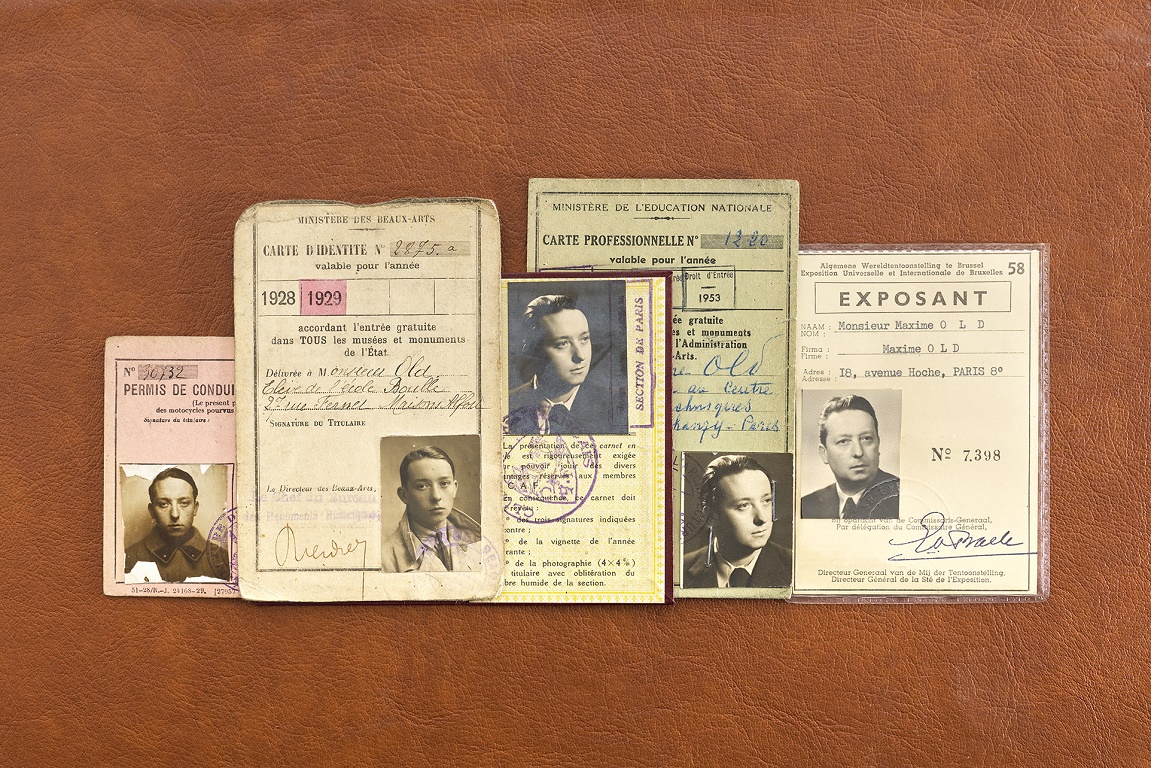 Nº 30732
PERMIS DE CONDUI
(Le présent p
des motocycles pourvus
Signature du titulaire :
51-28/R.-J. 24168-29. [2795
MINISTÈRE DES BEAUX-ARTS
CARTE D'IDENTITÉ Nº 2875.a
valable pour l'année
1928 1929
accordant l'entrée gratuite
dans TOUS les musées et monuments
de l'État.
Délivrée à Monsieur Old
Elève de l'école Boulle
2 rue Fernet Maisons Alfort
SIGNATURE DU TITULAIRE
Le Directeur des Beaux-Arts,
SECTION DE PARIS
La présentation de ce carnet en
é est rigoureusement exigée
r pouvoir jouir des divers
ntages réservés aux membres
C. A. F.
En conséquence, ce carnet doit
revêtu :
º des trois signatures indiquées
contre ;
º de la vignette de l'année
rante ;
º de la photographie (4×4%)
titulaire avec oblitération du
bre humide de la section.
MINISTÈRE DE L'EDUCATION NATIONALE
CARTE PROFESSIONNELLE Nº 12 20
valable pour l'année
Droit d'Entrée
1953
ée gratuite
es et monuments
l'Administration
-Arts.
re Old
au Centre
echniques
hanzy - Paris
Algemene Wereldtentoonstelling te Brussel
Exposition Universelle et Internationale de Bruxelles
58
EXPOSANT
NAAM :
NOM : Monsieur Maxime O L D
Firma :
Firme : Maxime O L D
Adres :
Adresse : I8, avenue Hoche, PARIS 8º
Nº 7.398
In opdracht van de Commissaris-Generaal,
Par délégation du Commissaire Général,
Directeur Generaal van de Mij der Tentoonstelling.
Directeur Général de la Sté de l'Exposition.